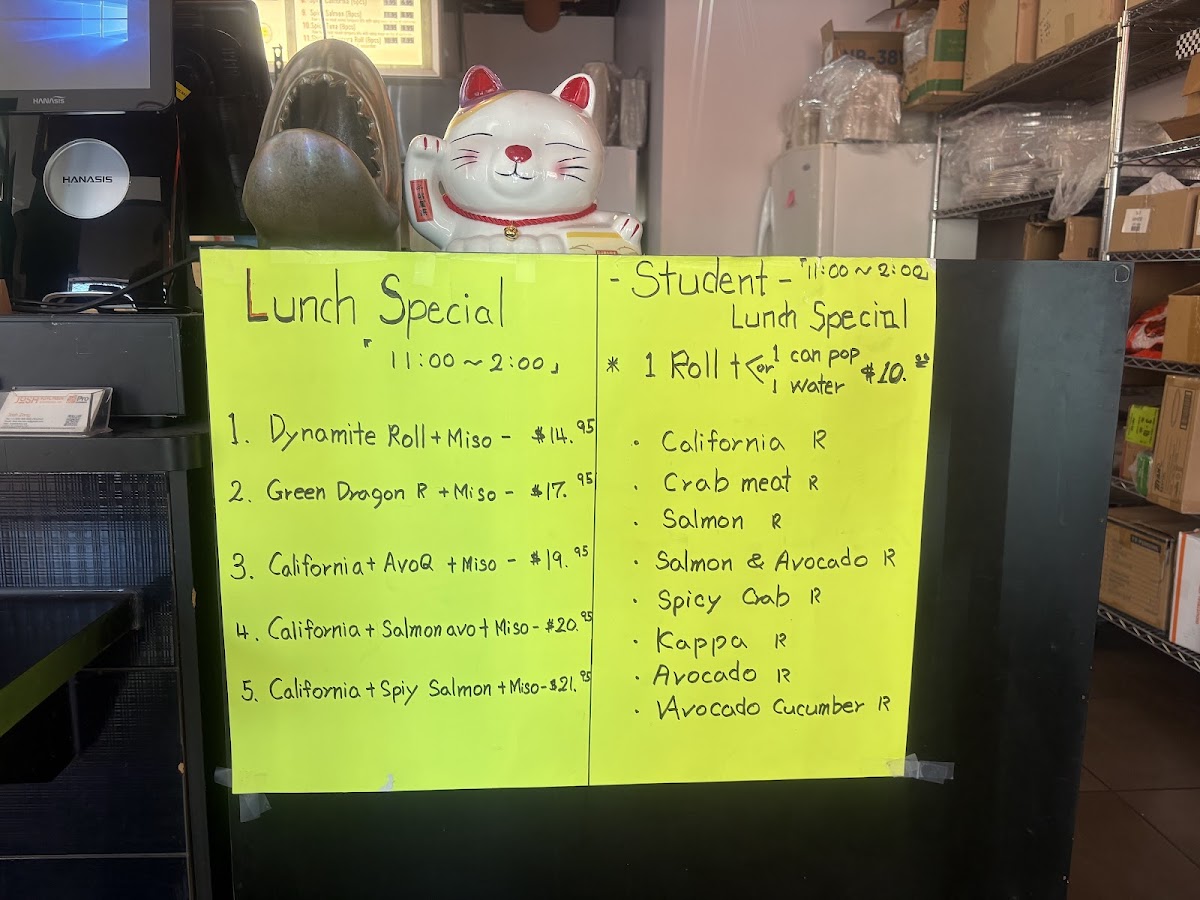 HANASIS
HANASIS
Lunch Special
「11:00 ~ 2:00」
1. Dynamite Roll + Miso - $14.95
2. Green Dragon R + Miso - $17.95
3. California + AvoQ + Miso - $19.95
4. California + Salmon avo + Miso - $20.95
5. California + Spiy Salmon + Miso - $21.95
- Student - 「11:00 ~ 2:00」
Lunch Special
* 1 Roll + < or 1 can pop
1 water $10.00
· California R
· Crab meat R
· Salmon R
· Salmon & Avocado R
· Spicy Crab R
· Kappa R
· Avocado R
· Avocado Cucumber R